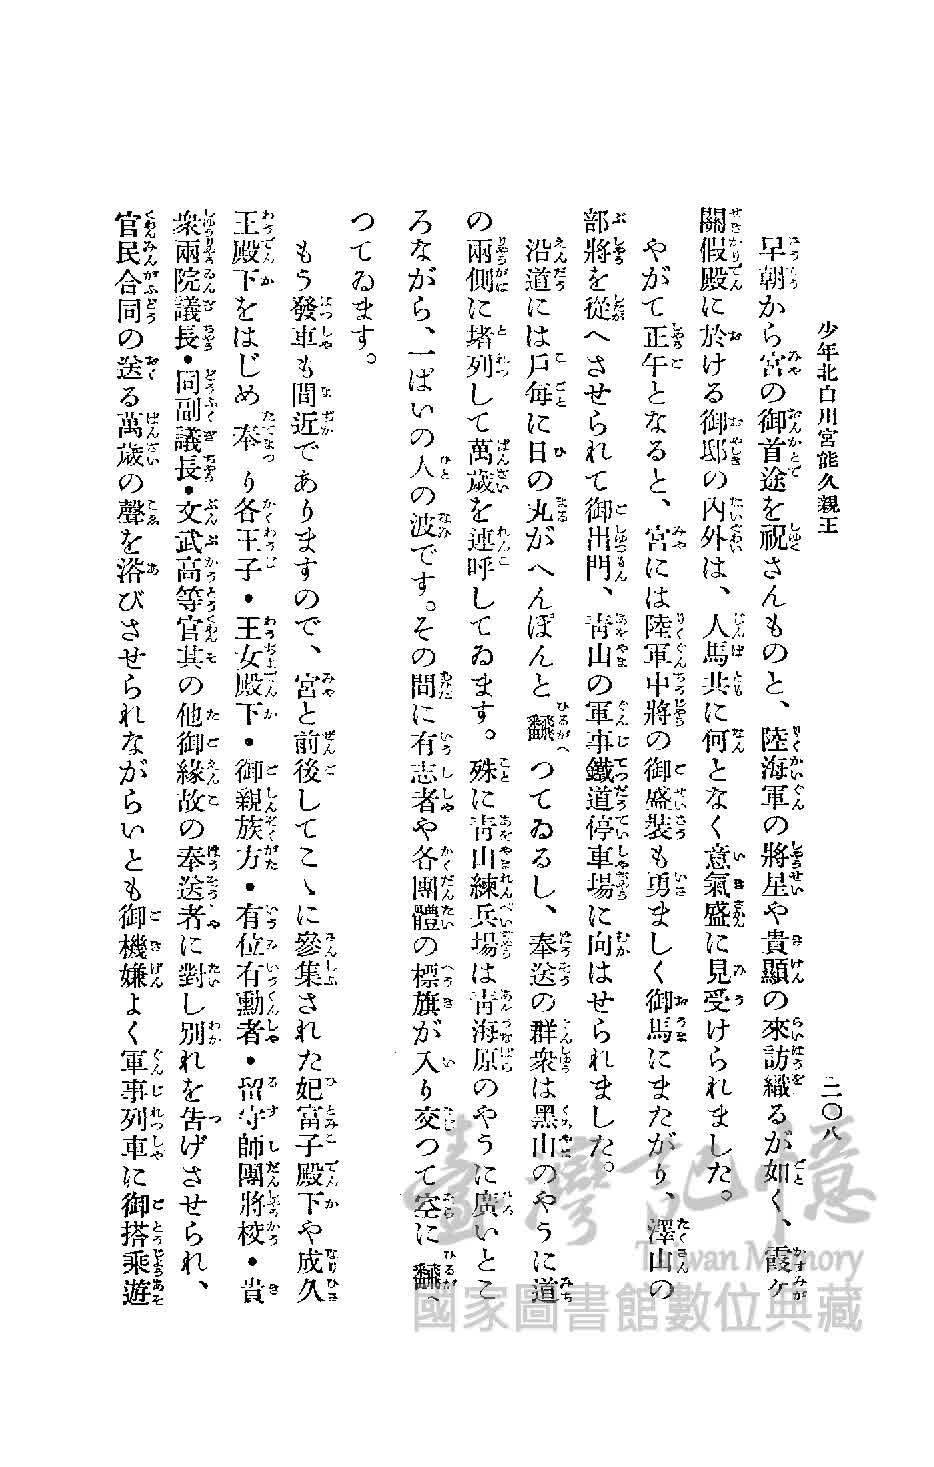 少年北白川宮能久親王
二〇八
早朝から宮の御首途を祝さんものと、陸海軍の將星や貴顯の來訪織るが如く、霞ヶ
關假殿に於ける御邸の内外は、人馬共に何となく意氣盛に見受けられました。
やがて正午となると、宮には陸軍中將の御盛裝も勇ましく御馬にまたがり、澤山の
部將を從へさせられて御出門、靑山の軍事鐵道停車場に向はせられました。
沿道には戸毎に日の丸がへんぽんと飜つてゐるし、奉送の群衆は黑山のやうに道
の兩側に堵列して萬歲を連呼してゐます。殊に靑山練兵場は靑海原のやうに廣いとこ
ろながら、一ぱいの人の波です。その間に有志者や各團體の標旗が入り交つて空に飜
つてゐます。
もう發車も間近でありますので、宮と前後してこゝに參集された妃富子殿下や成久
王殿下をはじめ奉り各王子・王女殿下・御親族方・有位有勳者・留守師團將校・貴
衆兩院議長・同副議長・文武高等官其の他御緣故の奉送者に對し別れを告げさせられ、
官民合同の送る萬歲の聲を浴びさせられながらいとも御機嫌よく軍事列車に御搭乘遊
臺灣記憶
Taiwan Memory
國家圖書館數位典藏